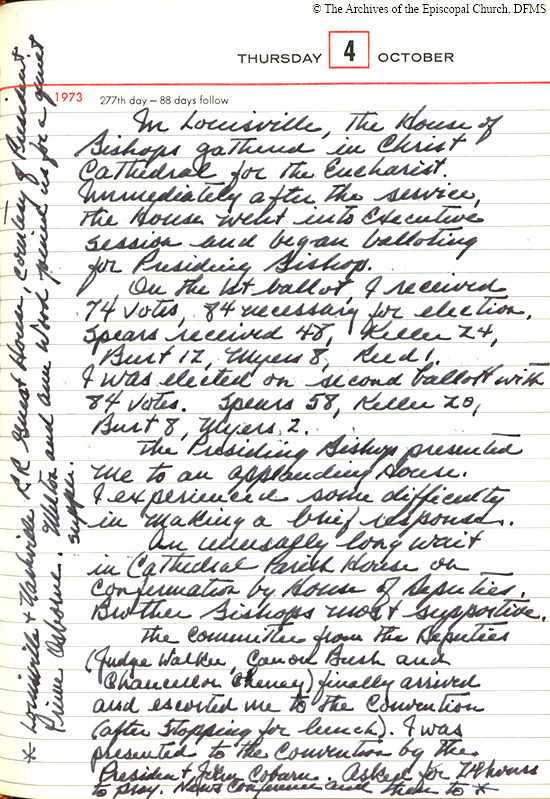 © The Archives of the Episcopal Church, DFMS
THURSDAY 4 OCTOBER
1973 277th day – 88 days follow
In Louisville, the House of
Bishops gathered in Christ
Cathedral for the Eucharist.
Immediately after the service,
the House went into executive
session and began balloting
for Presiding Bishop.
On the 1st ballot, I received
74 votes, 84 necessary for election,
Spears received 48, Keller 24,
Burt 12, Myers 8, Reed 1.
I was elected on second ballot with
84 votes. Spears 58, Keller 20,
Burt 8, Myers 2.
The Presiding Bishop presented
me to an applauding House.
I experienced some difficulty
in making a brief response.
An unusally long wait
in Cathedral Parish House on
confirmation by House of Deputies.
Brother Bishops most supportive.
The committee from the Deputies
(Judge Walker, Canon Bush and
Chancellor Cheney) finally arrived
and escorted me to the Convention
(after stopping for lunch). I was
presented to the Convention by the
President, John Coburn. Asked for 24 hours
to pray. News Conference and then to *
* Louisville + Nashville R.R. Guest House, courtesy of President
Prime Osborne. Milton and Ann Wood joined us for a quiet
supper.